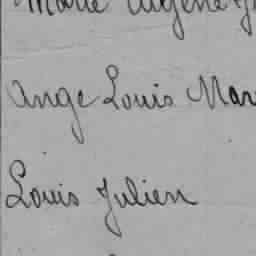 Marie Eugène
Ange Louis Mar
Louis Julien